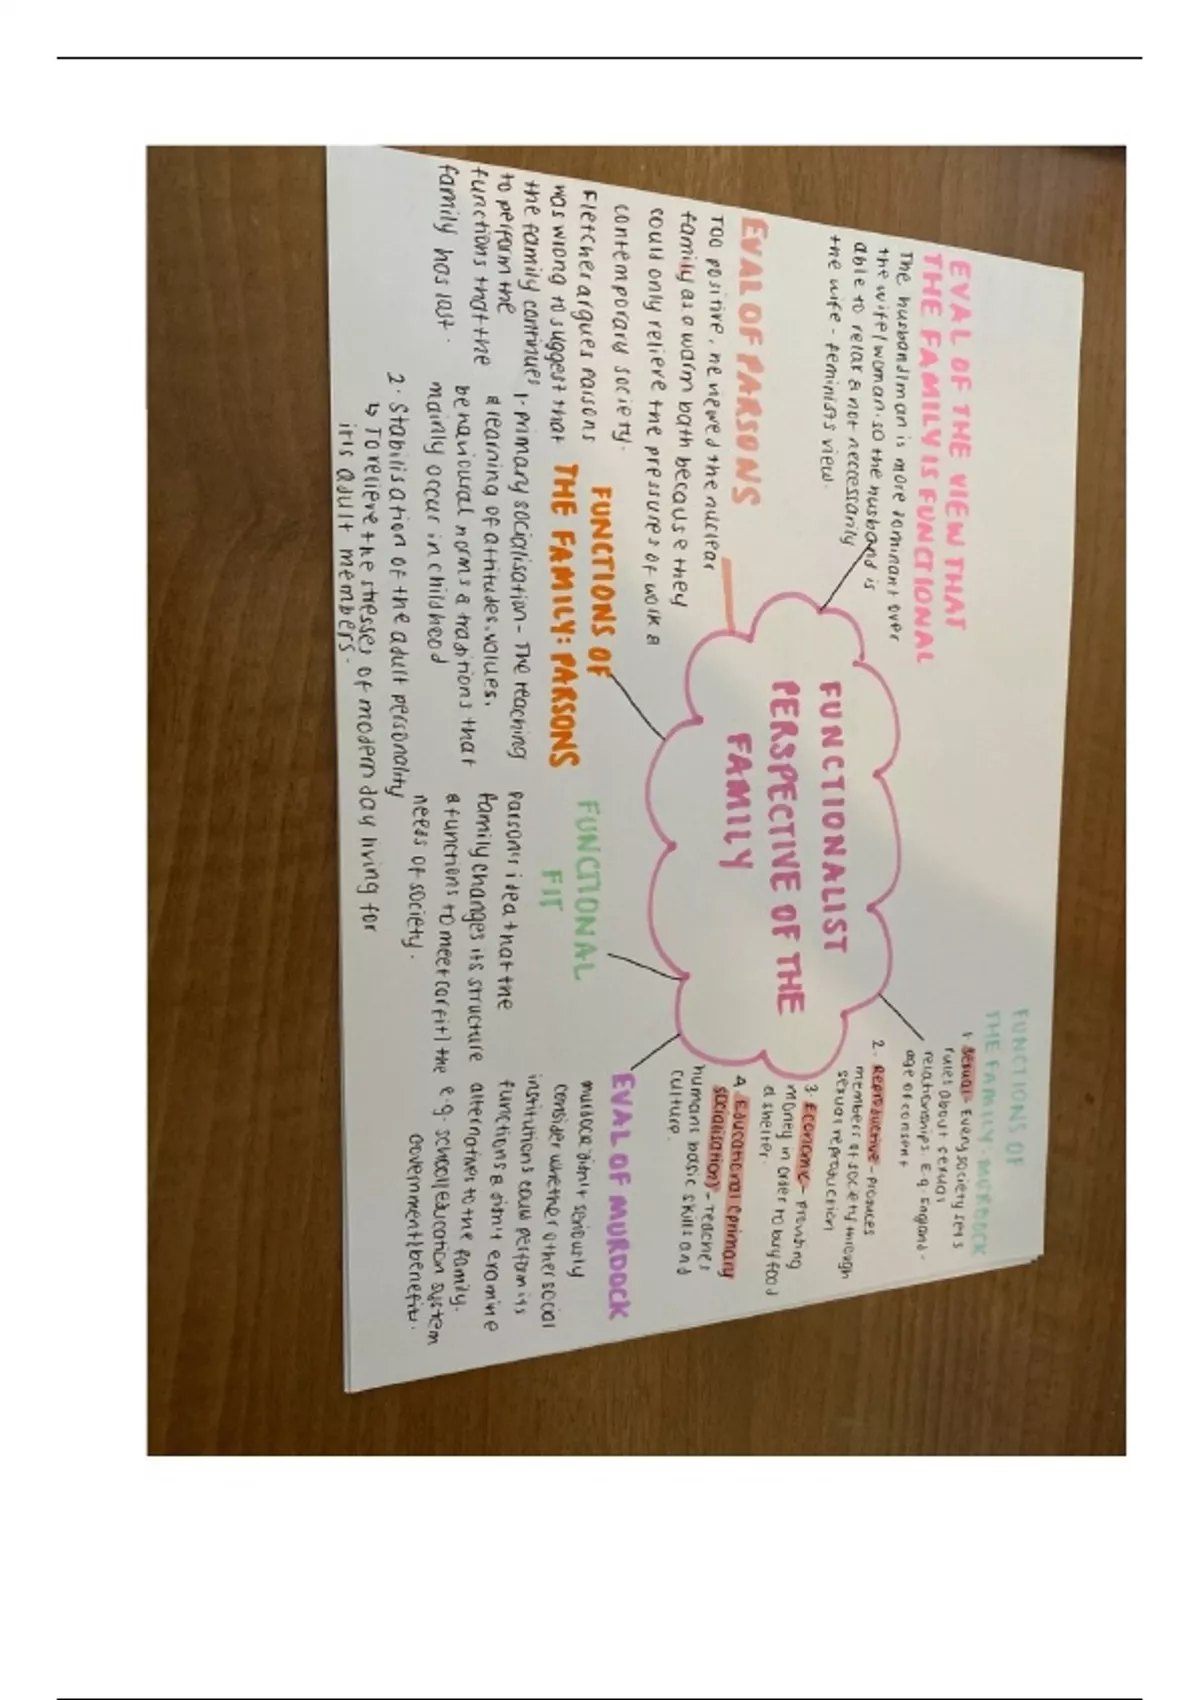 EVAL OF THE VIEW THAT
THE FAMILY IS FUNCTIONAL
The husband/man is more dominant over
the wife/woman. so the husband is
able to relax & not neccessarily
the wife - feminists view.
EVAL OF PARSONS
Too positive, he viewed the nuclear
family as a warm bath because they
could only relieve the pressures of work &
contemporary society.
Fletcher argues Parsons
was wrong to suggest that
the family continues
to perform the
functions that the
family has lost.
FUNCTIONALIST
PERSPECTIVE OF THE
FAMILY
FUNCTIONS OF
THE FAMILY - MURDOCK
1. Sexual - Every society sets
rules about sexual
relationships. E.g. England -
age of consent
2. Reproductive - produces
members of society through
sexual reproduction
3. Economic - Providing
money in order to buy food
& shelter.
4. Educational (primary
socialisation) - Teaches
humans basic skills and
culture.
FUNCTIONS OF
THE FAMILY: PARSONS
1. primary socialisation - The teaching
& learning of attitudes, values,
behavioural norms & traditions that
mainly occur in childhood
2. Stabilisation of the adult personality
↳ To relieve the stresses of modern day living for
it's adult members.
FUNCTIONAL
FIT
Parson's idea that the
family changes its structure
& functions to meet (or fit) the
needs of society.
EVAL OF MURDOCK
Murdock didn't seriously
consider whether other social
institutions could perform its
functions & didn't examine
alternatives to the family.
e.g. school/education system
Government/benefits.